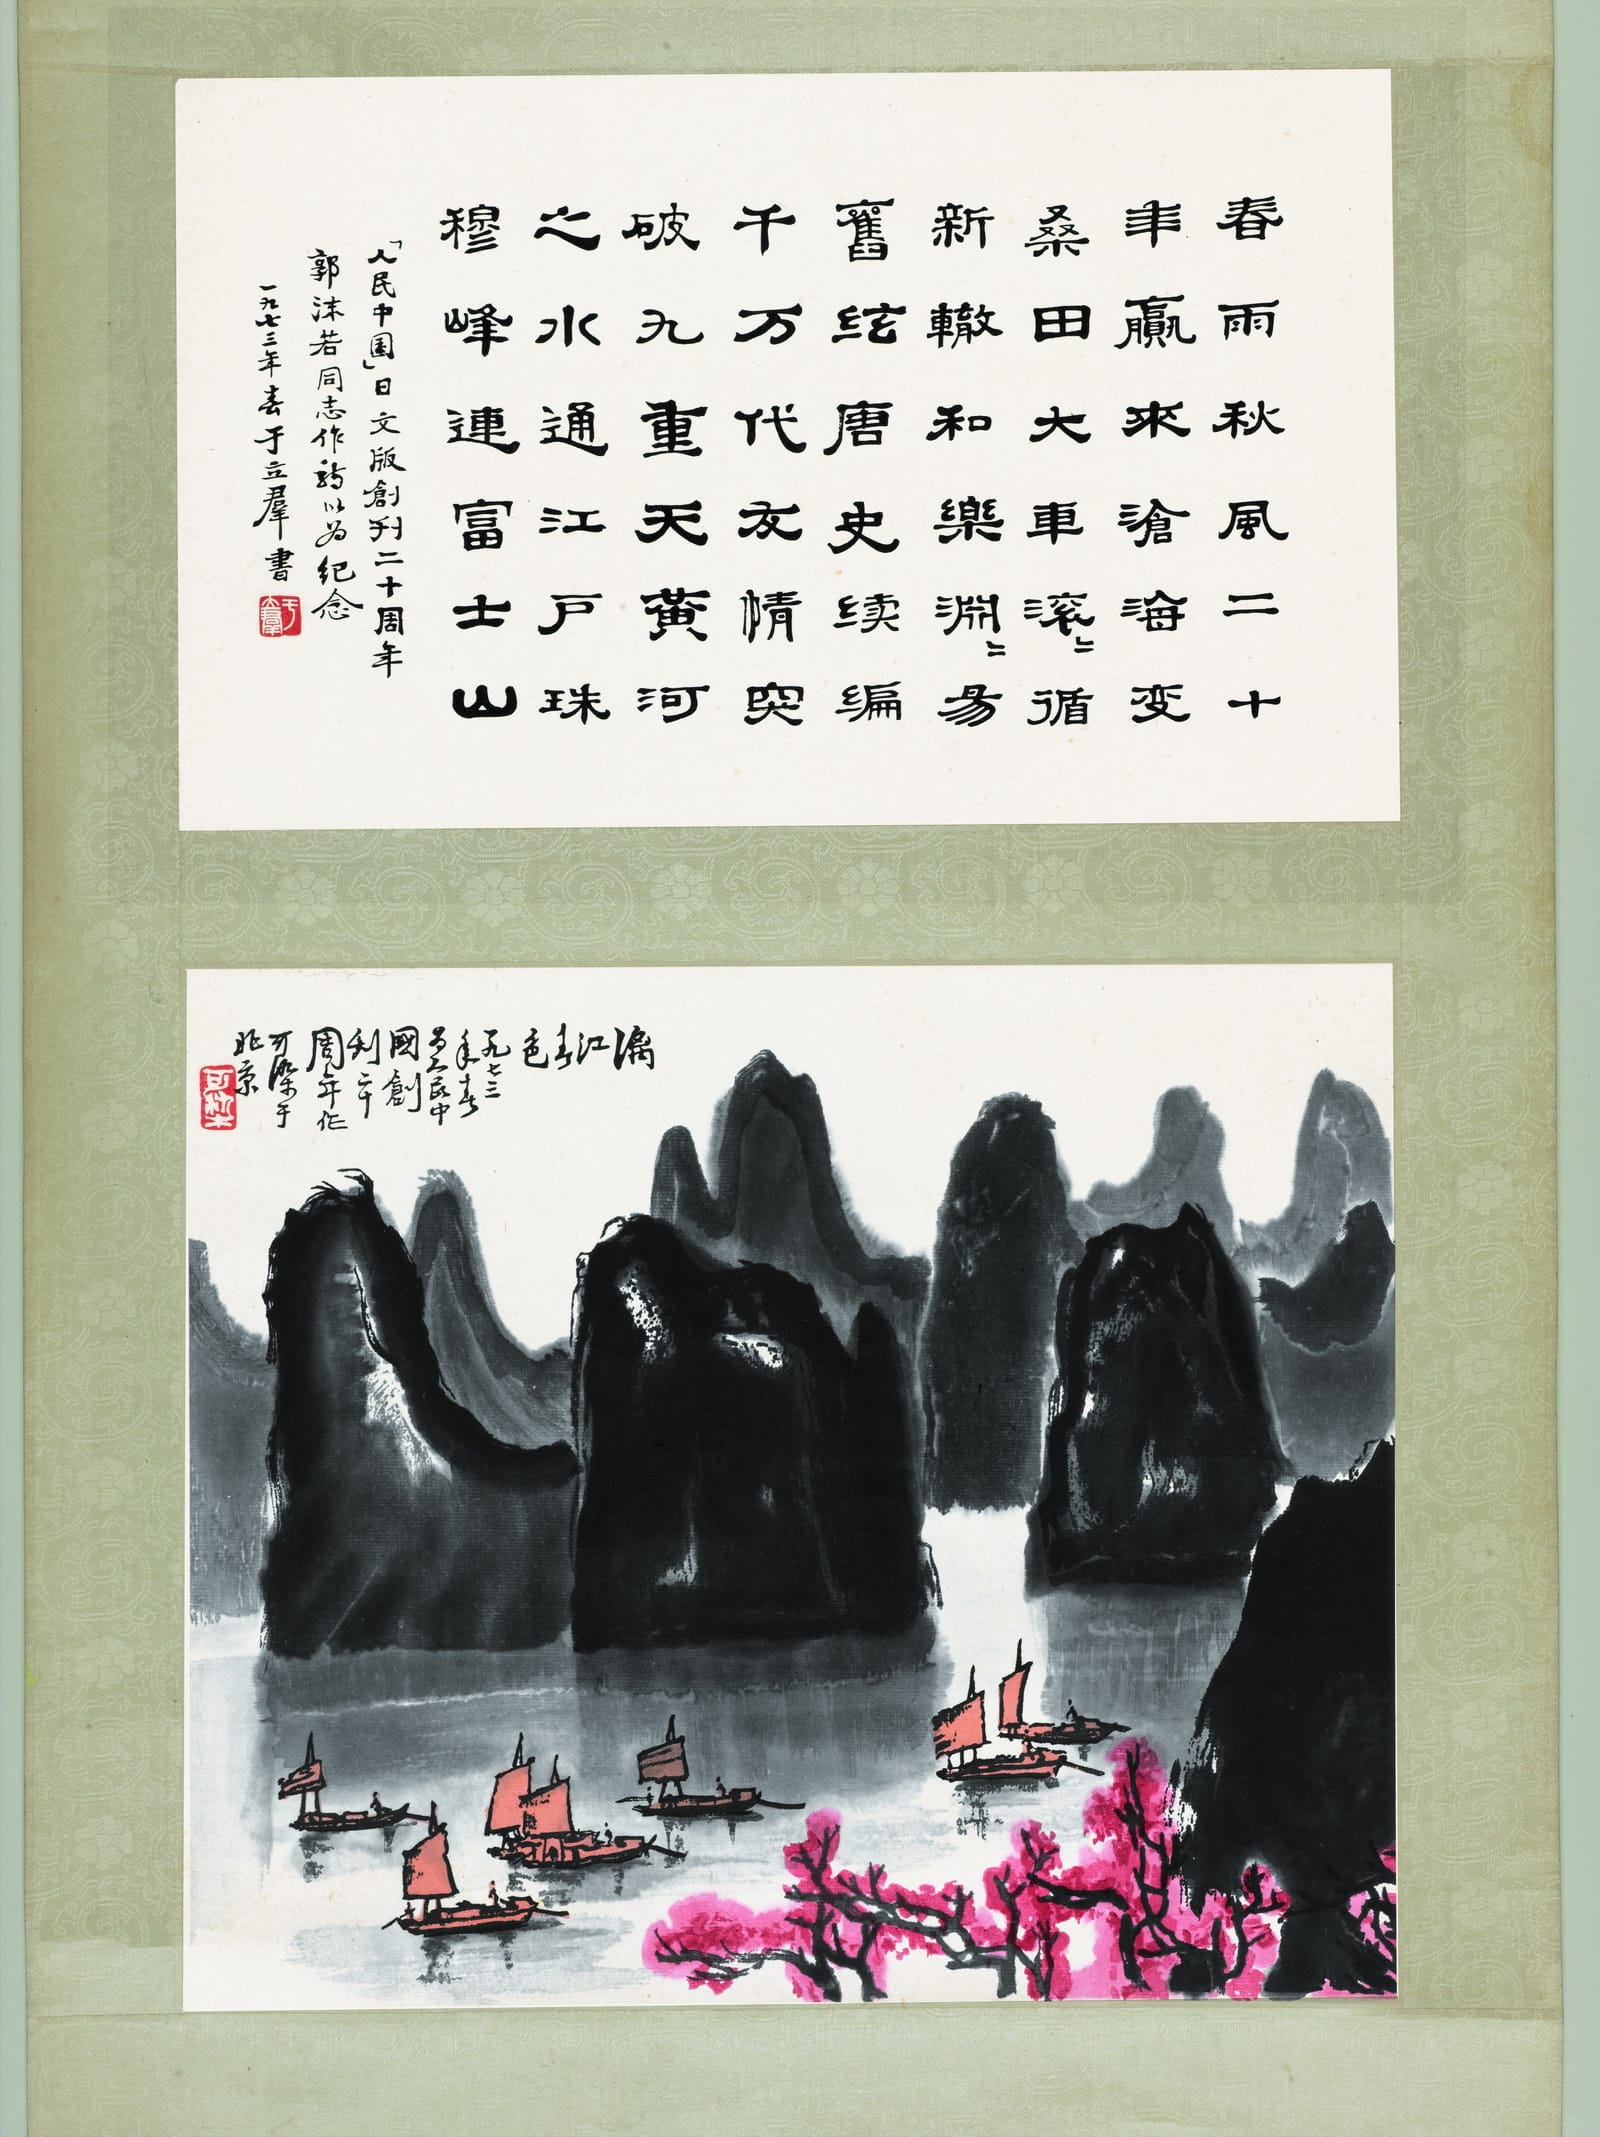 春雨秋風二十
年贏來滄海变
桑田大車滚〻循
新轍和樂淵〻易
舊絃唐史续编
千万代友情突
破九重天黄河
之水通江戸珠
穆峰連富士山
「人民中国」日文版創刊二十周年
郭沫若同志作詩以为纪念
一九七三年春于立羣書
漓江春色
一九七三
年春
为人民中
國創
刊二十
周年作
可染于
北京
可染